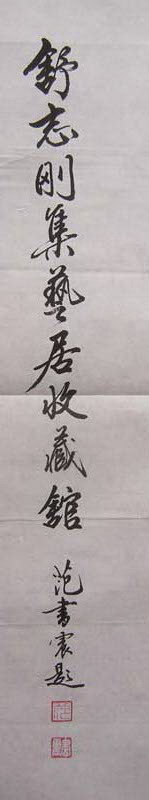 舒志刚集藝居收藏舘
范書震題